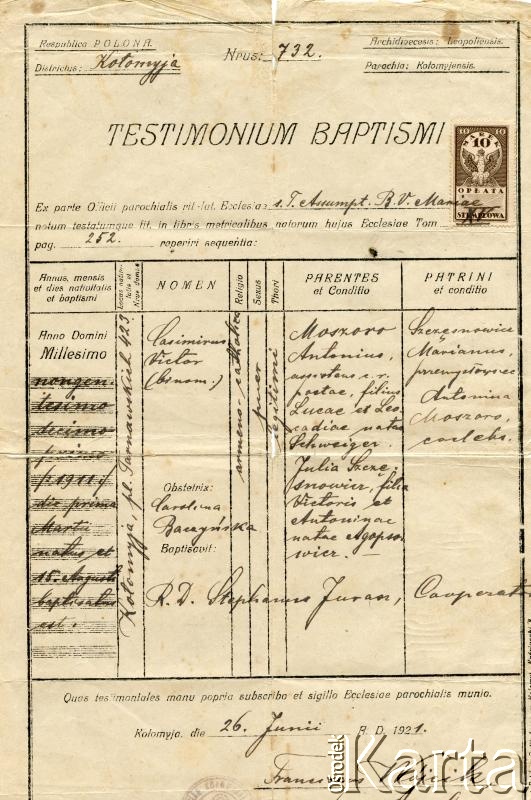 Respublica POLONA.
Districtus: Kołomyja
Nrus: 732.
Archidioecesis: Leopoliensis.
Parochia: Kołomyjensis.
TESTIMONIUM BAPTISMI
10 10
MAREK
10
OPŁATA
STEMPLOWA
Ex parte Officii parochialis rit. lat. Ecclesiae s. T. Assumpt. B. V. Mariae
notum testatumque fit, in libris metricalibus natorum hujus Ecclesiae Tom
pag. 252. reperiri sequentia:
Annus, mensis
et dies nativitatis
et baptismi
Locus nativitatis et
Nrus domus
NOMEN
Religio
Sexus
Thori
PARENTES
et Conditio
PATRINI
et conditio
Anno Domini
Millesimo
nongen
tesimo
decimo
primo
/:1911:/
die prima
Martii
natus et
15. Augusti
baptisatus
est.
Kołomyja, pl. Tarnawskich 423
Casimirus
Victor
(binom.)
Obstetrix:
Carolina
Baczyńska
Baptisavit:
R. D. Stephanus Jurasz, Cooperator
armeno-catholica
puer
legitimi
Moszoro
Antonius,
assistens c. r.
postae, filius
Lucae et Leo
cadiae natae
Schweiger.
Julia Szcze
snowicz, filia
Victoris et
Antoninae
natae Agopso
wicz.
Szczęsnowicz
Marianus,
przemysłowiec
Antonina
Moszoro,
coelebs.
Quas testimoniales manu propria subscribo et sigillo Ecclesiae parochialis munio.
Kołomyja, die 26. Junii A. D. 1921.
Franciscus Wójcik
Ośrodek
Karta